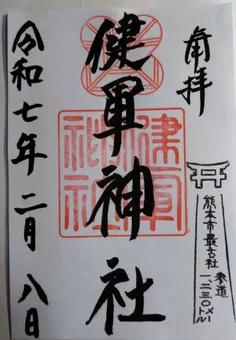 奉拝
熊本市最古社
参道
一、二三〇メートル
健軍神社
健軍
神社
令和七年二月八日